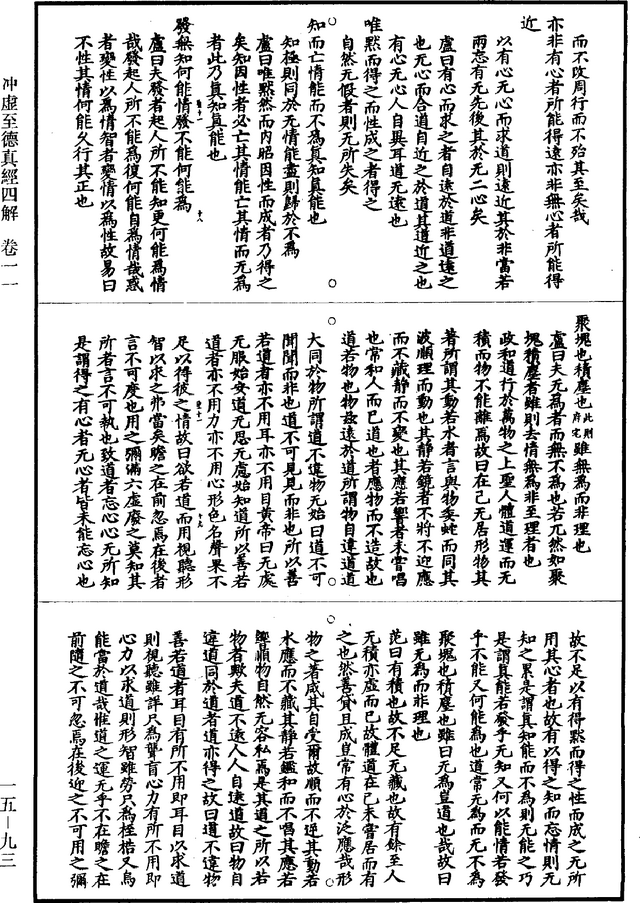 而不改周行而不殆其至矣哉
亦非有心者所能得遠亦非無心者所能得
近
以有心无心而求道則遠近其於非當若
兩忘有无先後其於无二心矣
盧曰有心而求之者自遠於道非道遠之
也无心而合道自近之於道其道近之也
有心无心人自異耳道无遠也
唯默而得之而性成之者得之
自然无假者則无所失矣
知而亡情能而不為真知真能也
知極則同於无情能盡則歸於不為
盧曰唯默然而內昭因性而成者乃得之
矣知因性者必亡其情能亡其情而无為
者此乃真知真能也
發無知何能情發不能何能為
盧曰夫發者起人所不能知更何能為情
哉發起人所不能為復何能自為情哉惑
者變性以為情智者變情以為性故易曰
不性其情何能久行其正也
聚塊也積塵也此則府宅雖無為而非理也
盧曰夫无為者而無不為也若兀然如聚
塊積塵者雖則去情無為非至理者也
政和道行於萬物之上聖人體道運而无
積而物不能離焉故曰在己无居形物其
著所謂其動若水者言與物委蛇而同其
波順理而動也其靜若鏡者不將不迎應
而不藏靜而不變也其應若響者未嘗唱
也常和人而已道也者應物而不造故也
道若物也物茲遠於道所謂物自違道道
大同於物所謂道不違物无始曰道不可
聞聞而非也道不可見見而非也所以善
若道者亦不用耳亦不用目黄帝曰无處
无服始安道无思无慮始知道所以善若
道者亦不用力亦不用心形色名聲果不
足以得彼之情故曰欲若道而用視聽形
智以求之弗當矣瞻之在前忽焉在後者
言不可度也用之彌滿六虛廢之莫知其
所者言不可執也致道者忘心心无所知
是謂得之有心者无心者皆未能忘心也
故不足以有得默而得之性而成之无所
用其心者也故有以得之知而忘情則无
知之累是謂真知能而不為則无能之巧
是謂真能若發乎无知又何以能情若發
乎不能又何能為也道常无為而无不為
聚塊也積塵也雖曰无為豈道也哉故曰
雖无為而非理也
范曰有積也故不足无藏也故有餘至人
无積亦虛而已故體道在己未嘗居而有
之也然善貸且成豈常有心於泛應哉形
物之著咸其自受爾故順而不逆其動若
水應而不藏其靜若鑑和而不唱其應若
響順物自然无容私焉是其道之所以若
物者歟夫道不遠人人自遠道故曰物自
違道道同於道者道亦得之故曰道不違物
善若道者耳目有所不用即耳目以求道
則視聽雖詳只為聾盲心力有所不用即
心力以求道則形智雖勞只為桎梏又烏
能當於道哉惟道之運无乎不在瞻之在
前隨之不可忽焉在後迎之不可用之彌
冲虛至德真經四解　卷一一
一五—九三